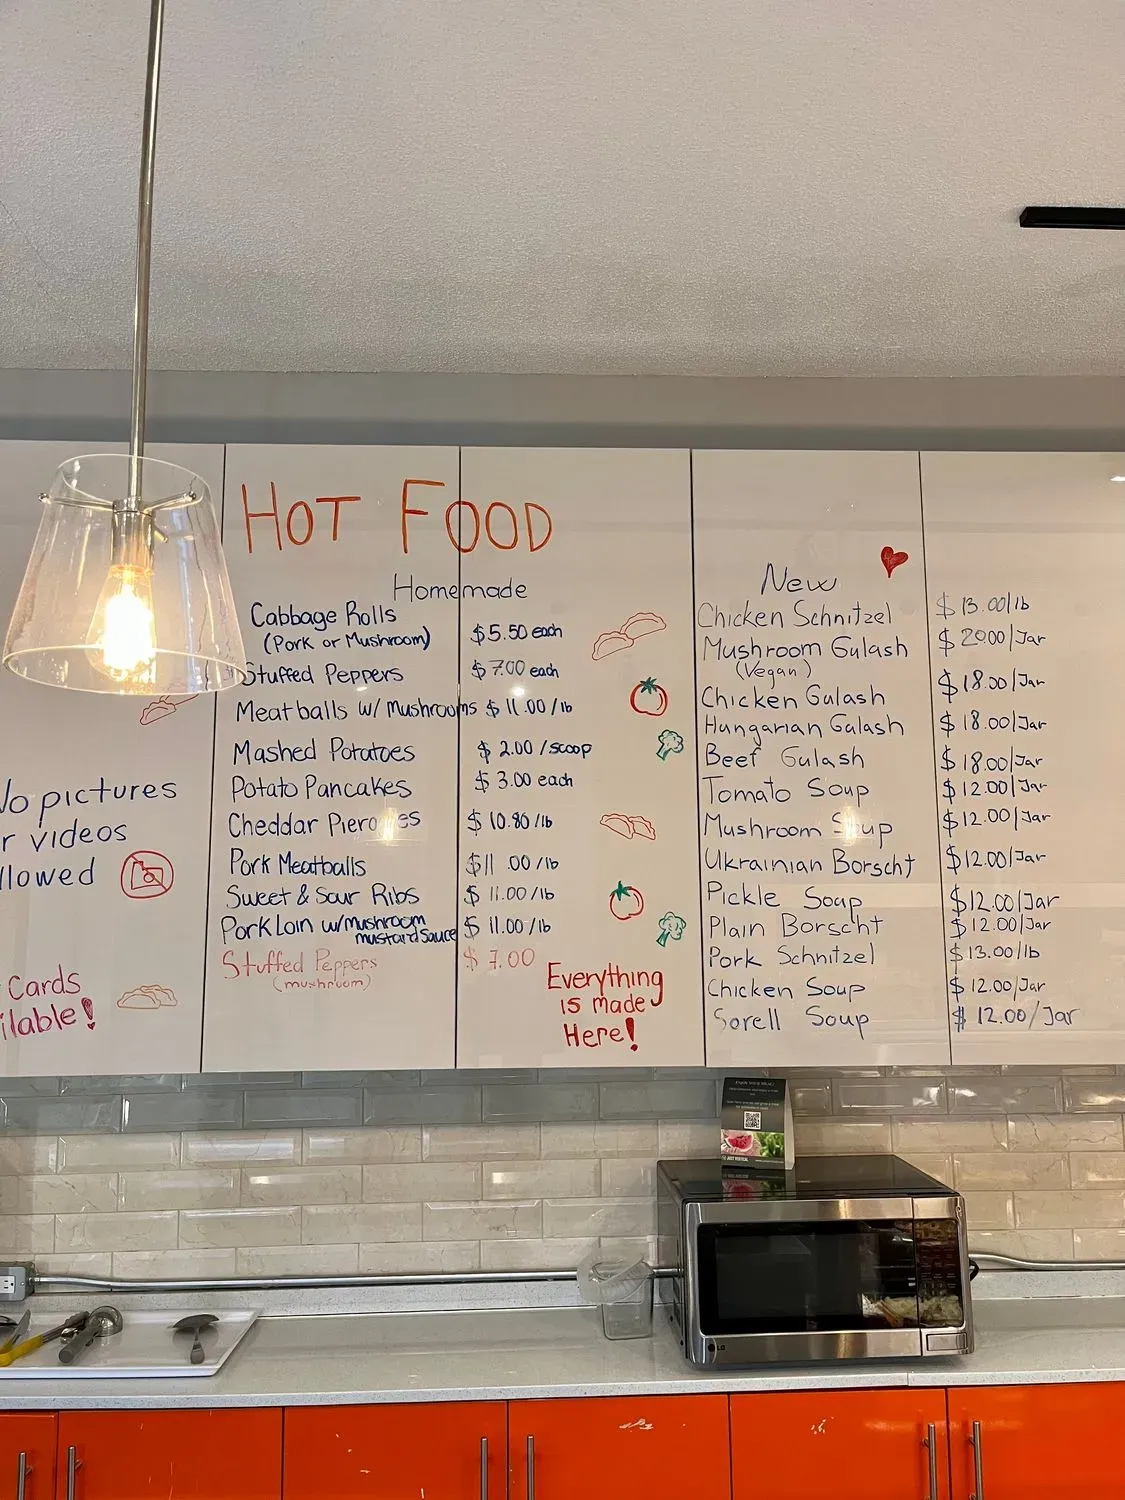 HOT FOOD
Homemade
Cabbage Rolls
(Pork or Mushroom) $5.50 each
Stuffed Peppers $7.00 each
Meatballs w/ Mushrooms $11.00/lb
Mashed Potatoes $2.00/scoop
Potato Pancakes $3.00 each
Cheddar Pierogies $10.80/lb
Pork Meatballs $11.00/lb
Sweet & Sour Ribs $11.00/lb
Pork Loin w/mushroom $11.00/lb
mustard sauce
Stuffed Peppers $7.00
(mushroom)
Everything
is made
Here!
New
Chicken Schnitzel $13.00/lb
Mushroom Gulash $20.00/Jar
(Vegan)
Chicken Gulash $18.00/Jar
Hungarian Gulash $18.00/Jar
Beef Gulash $18.00/Jar
Tomato Soup $12.00/Jar
Mushroom Soup $12.00/Jar
Ukrainian Borscht $12.00/Jar
Pickle Soup $12.00/Jar
Plain Borscht $12.00/Jar
Pork Schnitzel $13.00/lb
Chicken Soup $12.00/Jar
Sorell Soup $12.00/Jar
No pictures
r videos
llowed
Cards
ilable!
LG